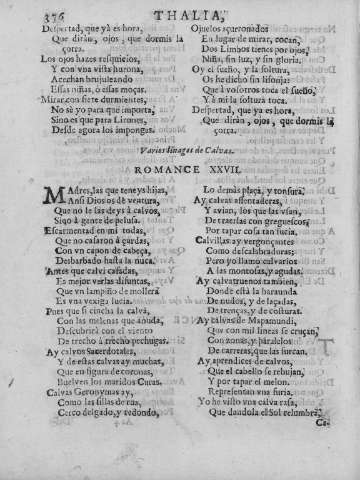 376
THALIA,
Despertad, que yà es hora,
Que diràn, ojos, que dormis la
çorra.
Los ojos hazes resquicios,
Y con vna vista hurona,
Acechan brujuleando
Essas niñas, ò essas moças.
Mirar con siete durmientes,
No sè yo para què importa,
Sino es que para Lirones,
Desde agora los impongas.
Ojuelos açurronados
En lugar de mirar, cocan,
Dos Limbos tienes por ojos,
Niña, sin luz, y sin gloria.
Oy el sueño, y la soltura,
Os he dicho sin lisonja:
Que à vosotros toca el sueño,
Y à mi la soltura toca.
Despertad, que ya es hora,
Què diràn, ojos, que dormis la
çorra.
Varios linages de Calvas.
ROMANCE XXVII.
MAdres, las que teneys hijas,
Ansi Dios os dè ventura,
Que no se las deys à calvos,
Sino à gente de pelusa.
Escarmentad en mi todas,
Que no casaron à çurdas,
Con vn capon de cabeça,
Desbarbado hasta la nuca.
Antes que calvi casadas,
Es mejor verlas difuntas,
Que vn lampiño de mollera
Es vna vexiga lucia.
Pues que si cincha la calva
Con las melenas que anuda,
Descubrirà con el viento
De trecho à trecho pechugas.
Ay calvos Sacerdotales,
Y de estas calvas ay muchas,
Que en figura de coronas,
Buelven los maridos Curas.
Calvas Geronymas ay,
Como las sillas de rua,
Cerco delgado, y redondo,
Lo demàs plaça, y tonsura.
Ay calvas assentaderas,
Y avian, los que las vsan,
De traerlas con greguescos,
Por tapar cosa tan sucia.
Calvillas ay vergonçantes
Como descalabraduras;
Pero yo llamo calvarios
A las montosas, y agudas.
Ay calvatruenos tambien,
Donde està la baraunda
De nudos, y de laçadas,
De trenças, y de costuras.
Ay calvas de Mapamundi,
Que con mil lineas se cruçan,
Con zonas, y paralelos
De carreras, que las surcan.
Ay aprendices de calvos,
Que el cabello se rebujan,
Y por tapar el melon.
Representan vna furia.
Yo he visto vna calva rasa,
Que dandola el Sol relumbra,
Ca-